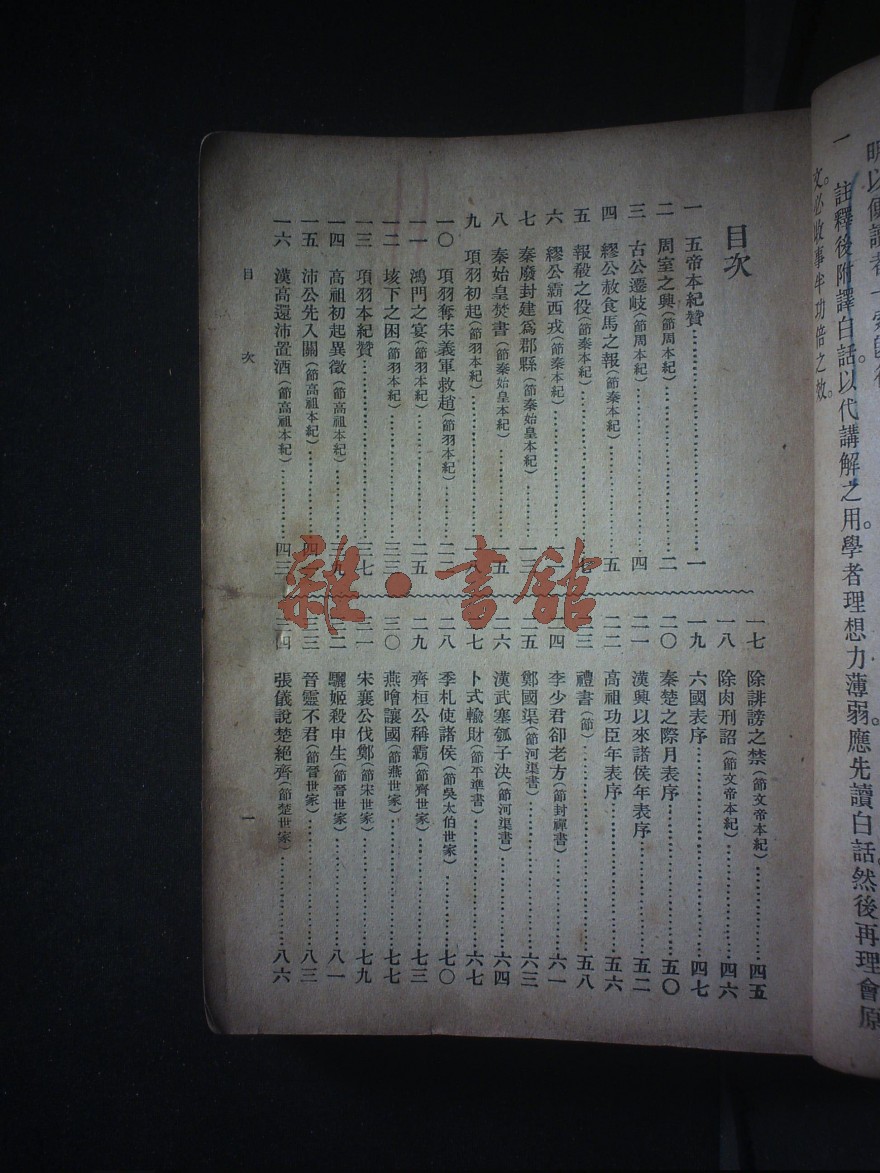 明以便讀者一索
一　註釋後附譯白話以代講解之用。學者理想力薄弱。應先讀白話。然後再理會原
文。必收事半功倍之效。
目次
一　五帝本紀贊…………一
二　周室之興(節周本紀)…………二
三　古公遷岐(節周本紀)…………四
四　繆公赦食馬之報(節秦本紀)…………五
五　報殽之役(節秦本紀)…………七
六　繆公霸西戎(節秦本紀)…………
七　秦廢封建爲郡縣(節秦始皇本紀)…………一三
八　秦始皇焚書(節秦始皇本紀)…………五
九　項羽初起(節羽本紀)…………一八
一〇　項羽奪宋義軍救趙(節羽本紀)…………二
一一　鴻門之宴(節羽本紀)…………二五
一二　垓下之困(節羽本紀)…………三三
一三　項羽本紀贊…………三七
一四　高祖初起異徵(節高祖本紀)…………三九
一五　沛公先入關(節高祖本紀)…………四
一六　漢高還沛置酒(節高祖本紀)…………四三
一七　除誹謗之禁(節文帝本紀)…………四五
一八　除肉刑詔(節文帝本紀)…………四六
一九　六國表序…………四七
二〇　秦楚之際月表序…………五〇
二一　漢興以來諸侯年表序…………五二
二二　高祖功臣年表序…………五六
二三　禮書(節)…………五八
二四　李少君卻老方(節封禪書)…………六一
二五　鄭國渠(節河渠書)…………六三
二六　漢武塞瓠子決(節河渠書)…………六四
二七　卜式輸財(節平準書)…………六七
二八　季札使諸侯(節吳太伯世家)…………七〇
二九　齊桓公稱霸(節齊世家)…………七三
三〇　燕噲讓國(節燕世家)…………七七
三一　宋襄公伐鄭(節宋世家)…………七九
三二　驪姬殺申生(節晉世家)…………八一
三三　晉靈不君(節晉世家)…………八三
三四　張儀說楚絕齊(節楚世家)…………八六
目次
一
雜·書館